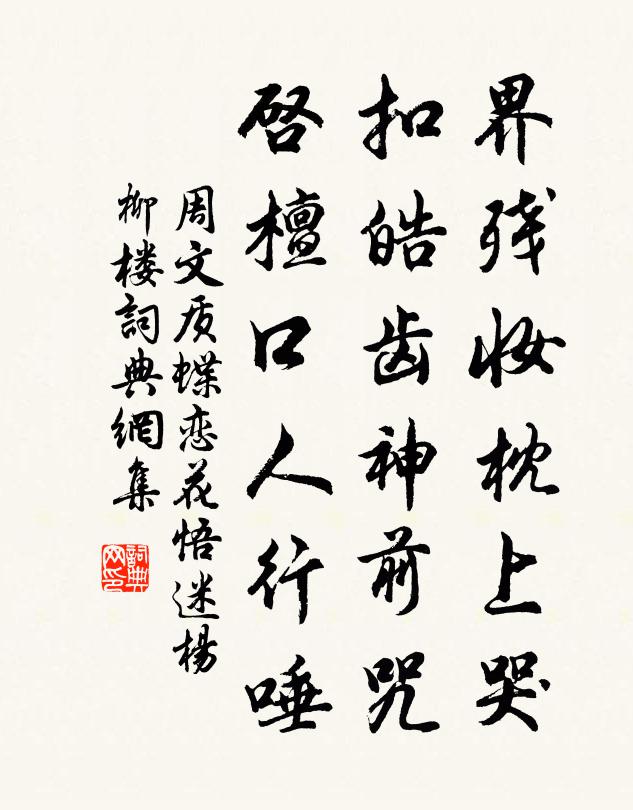 界残妆枕上哭
扣皓齿神前咒
啓檀口人行唾
周文质蝶恋花悟迷楊
柳楼詞典網集
詞典网印